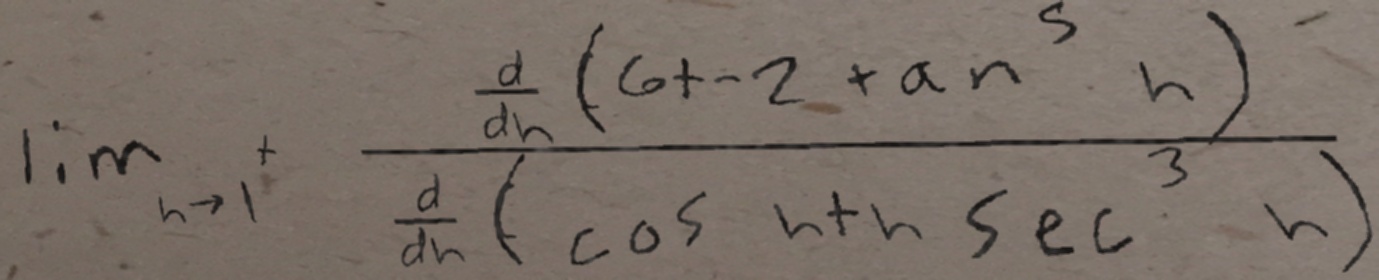 \lim_{h \to 1^+} \frac{\frac{d}{dh}(6+-2\tan^5 h)}{\frac{d}{dh}(\cos h+h\sec^3 h)}